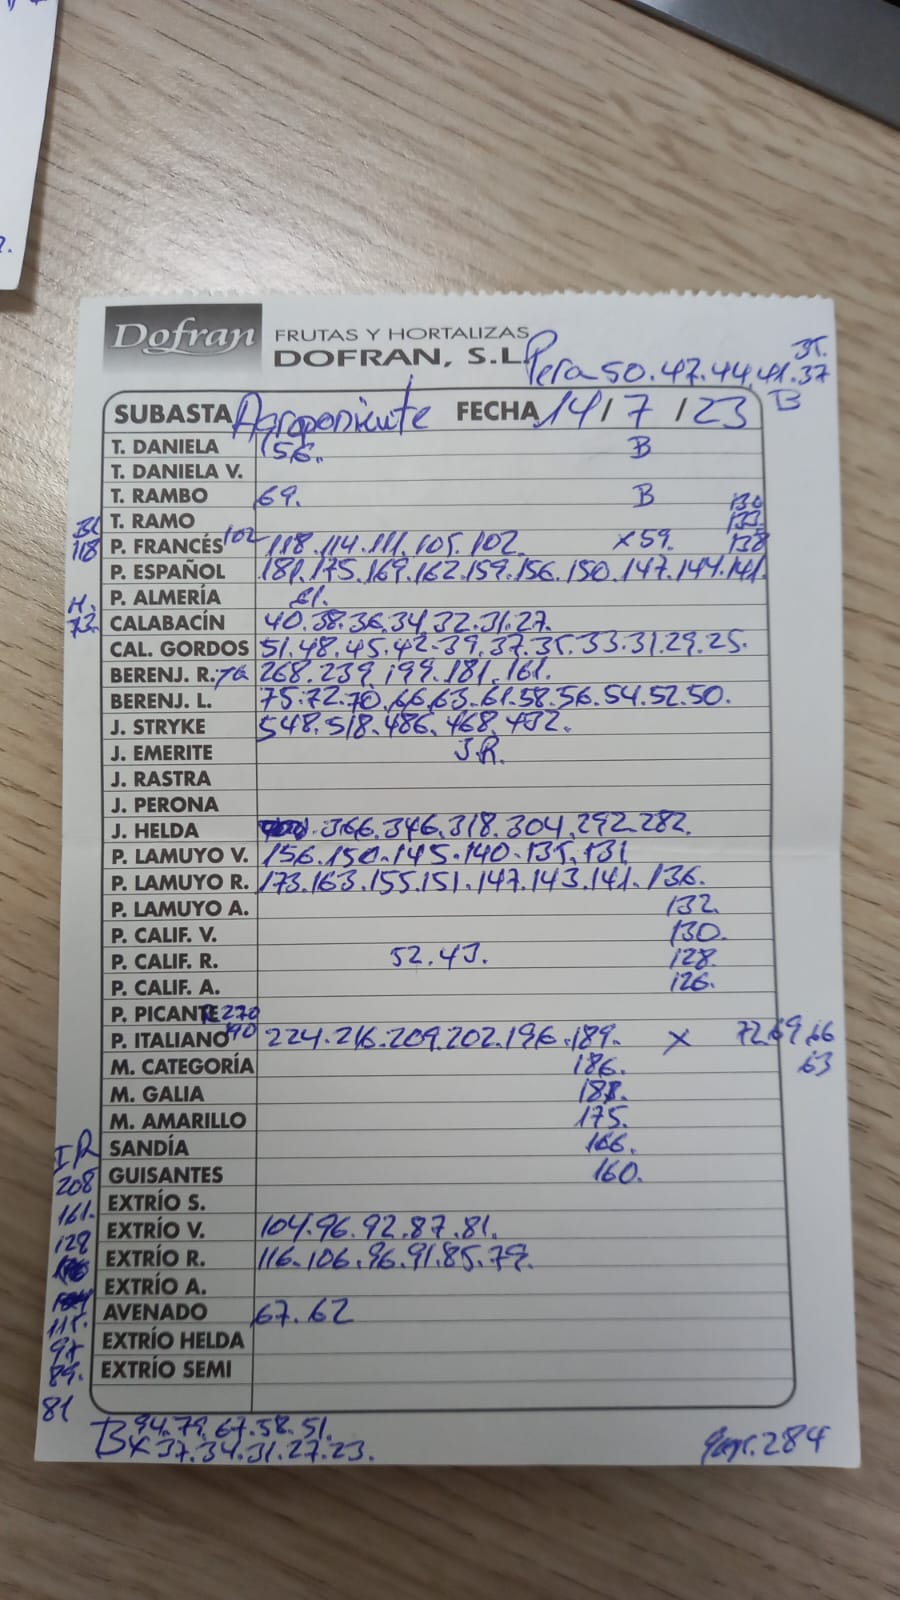 Dofran FRUTAS Y HORTALIZAS
DOFRAN, S.L.
35.
Pera 50.47.44.41.37
B
SUBASTA Agroponiente FECHA 14/7/23
T. DANIELA 156. B
T. DANIELA V.
T. RAMBO 69. B
130
T. RAMO 133.
118 P. FRANCÉS 102 118.114.111.105.102. x59. 138
P. ESPAÑOL 181.175.169.162.159.156.150.147.144.141.
P. ALMERÍA 81.
H.
73. CALABACÍN 40.38.36.34.32.31.27.
CAL. GORDOS 51.48.45.42.39.37.35.33.31.29.25.
BERENJ. R. 268.239.199.181.161.
BERENJ. L. 75.72.70.66.63.61.58.56.54.52.50.
J. STRYKE 548.518.486.468.432.
J. EMERITE J.R.
J. RASTRA
J. PERONA
J. HELDA 366.346.318.304.292.282.
P. LAMUYO V. 156.150.145.140.135.131
P. LAMUYO R. 173.163.155.151.147.143.141.136.
P. LAMUYO A. 132.
P. CALIF. V. 130.
P. CALIF. R. 52.43. 128.
P. CALIF. A. 126.
P. PICANTE 270
P. ITALIANO 190 224.216.209.202.196.189. x 72.69.66
M. CATEGORÍA 186. 63
M. GALIA
M. AMARILLO 175.
IR SANDÍA 166.
208 GUISANTES 160.
161. EXTRÍO S.
128 EXTRÍO V. 104.96.92.87.81.
EXTRÍO R. 116.106.96.91.85.79.
EXTRÍO A.
115. AVENADO 67.62
97 EXTRÍO HELDA
89. EXTRÍO SEMI
81
B 94.79.67.58.51.
x 37.34.31.27.23.
284